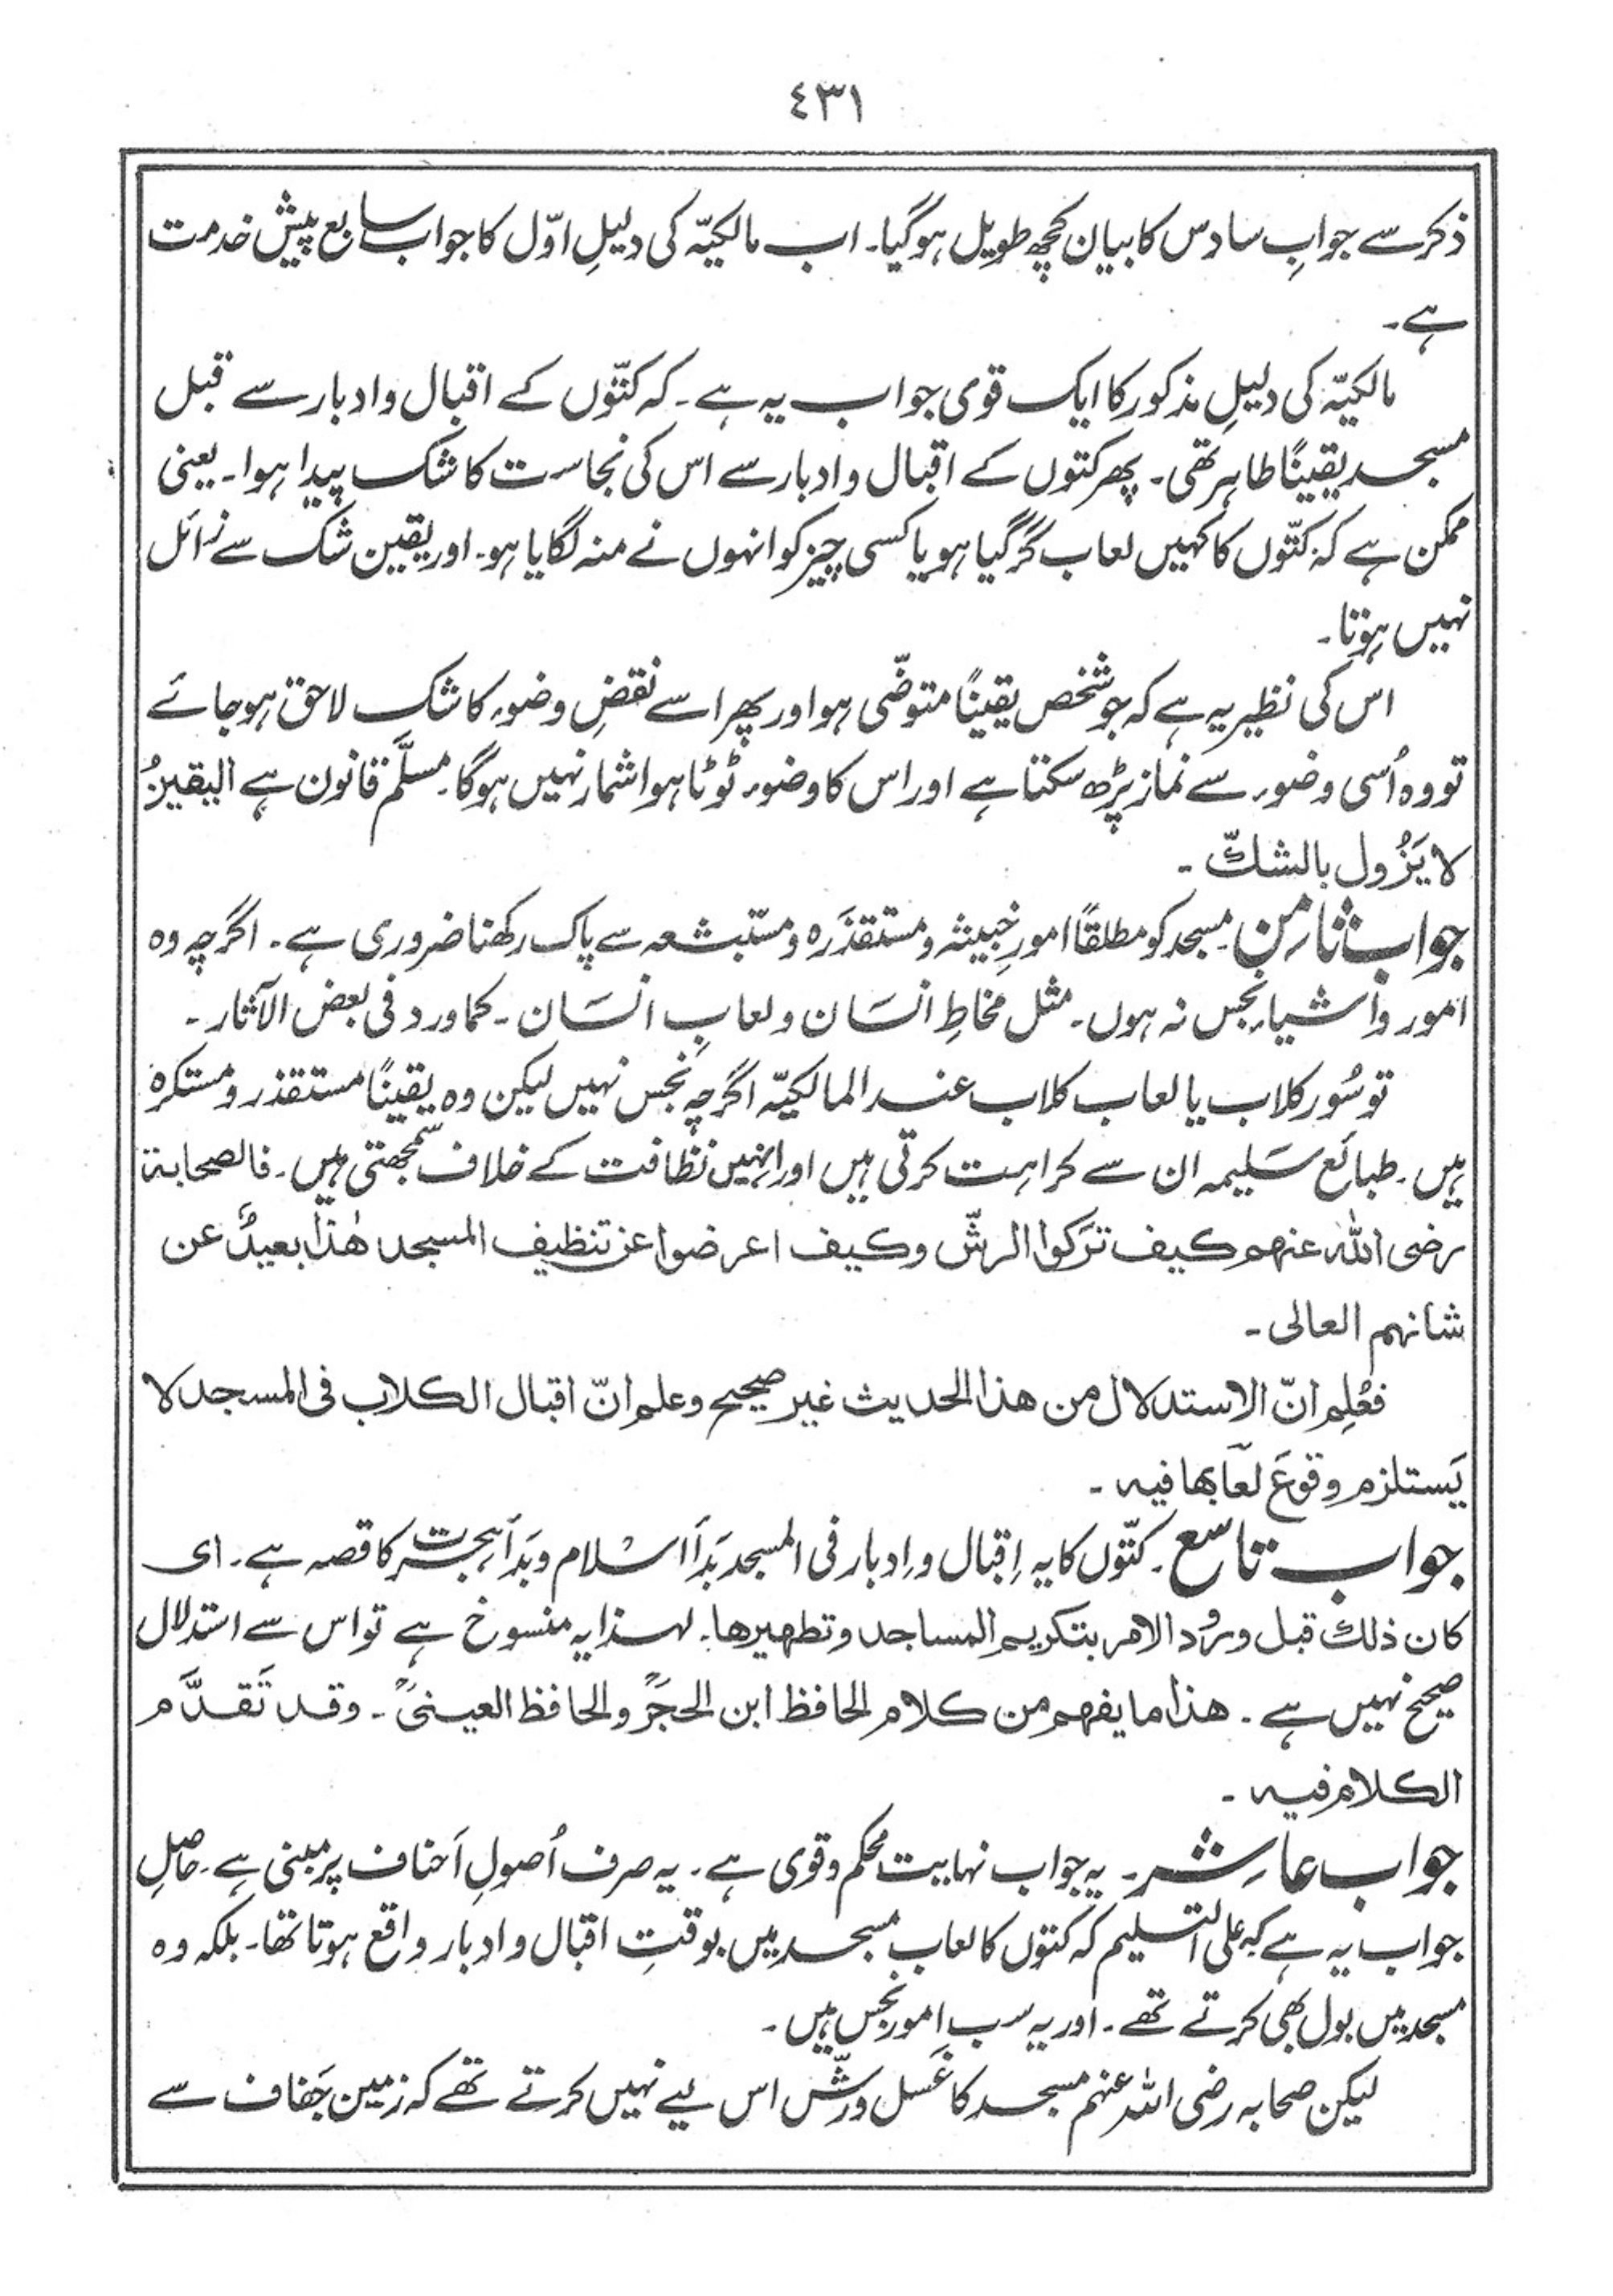 ٤٣١
ذکر سے جوابِ سادس کا بیان کچھ طویل ہوگیا۔ اب مالکیّہ کی دلیلِ اوّل کا جواب سابع پیش خدمت
ہے۔
مالکیّہ کی دلیلِ مذکور کا ایک قوی جواب یہ ہے۔ کہ کتّوں کے اقبال و ادبار سے قبل
مسجد یقینًا طاہر تھی۔ پھر کتوں کے اقبال و ادبار سے اس کی نجاست کا شک پیدا ہوا۔ یعنی
ممکن ہے کہ کتّوں کا کہیں لعاب گر گیا ہو یا کسی چیز کو انہوں نے منہ لگایا ہو۔ اور یقین شک سے زائل
نہیں ہوتا۔
اس کی نظیر یہ ہے کہ جو شخص یقینًا متوضّی ہو اور پھر اسے نقضِ وضوء کا شک لاحق ہو جائے
تو وہ اُسی وضوء سے نماز پڑھ سکتا ہے اور اس کا وضوء ٹوٹا ہوا شمار نہیں ہوگا۔ مسلَّم قانون ہے الیقینُ
لا یَزُول بالشكّ ۔
جواب ثامِن۔ مسجد کو مطلقًا امورِ خبیثہ و مستقذَرہ و مستبشعہ سے پاک رکھنا ضروری ہے۔ اگرچہ وہ
امور و اشیاء نجس نہ ہوں۔ مثل مخاطِ انسَان و لعابِ انسَان ۔ کما ورد فی بعض الآثار ۔
تو سُور کلاب یا لعاب کلاب عند المالکیّہ اگرچہ نجس نہیں لیکن وہ یقینًا مستقذر و مستکرہ
ہیں۔ طبائع سَلیمہ ان سے کراہت کرتی ہیں اور انہیں نظافت کے خلاف سمجھتی ہیں۔ فالصحابة
رضی اللہ عنہم کیف ترَکوا الرشّ وکیف اعرضوا عن تنظیف المسجد ھٰذا بعیدٌ عن
شانہم العالی ۔
فعُلِم انّ الاستدلال من ھذا الحدیث غیر صحیح وعلم انّ اقبال الکلاب فی المسجد لا
یَستلزم وقوعَ لعَابھا فیہ ۔
جواب تاسع۔ کتّوں کا یہ اِقبال و اِدبار فی المسجد بَدأ اسْلام و بَدأ ہجرت کا قصہ ہے۔ ای
کان ذلك قبل ورُود الامر بتکریم المساجد و تطھیرھا۔ لہٰذا یہ منسوخ ہے تو اس سے استدلال
صحیح نہیں ہے۔ ھذا ما یفھم من کلام الحافظ ابن الحجرؒ والحافظ العینیؒ ۔ وقد تَقدَّم
الکلام فیہ ۔
جواب عاشر۔ یہ جواب نہایت محکم و قوی ہے۔ یہ صرف اُصولِ اَحناف پر مبنی ہے۔ حاصلِ
جواب یہ ہے کہ علی التسلیم کہ کتوں کا لعاب مسجد میں بوقتِ اقبال و ادبار واقع ہوتا تھا۔ بلکہ وہ
مسجد میں بول بھی کرتے تھے۔ اور یہ سب امور نجس ہیں۔
لیکن صحابہ رضی اللہ عنہم مسجد کا غَسل و رشّ اس لیے نہیں کرتے تھے کہ زمین جَفاف سے